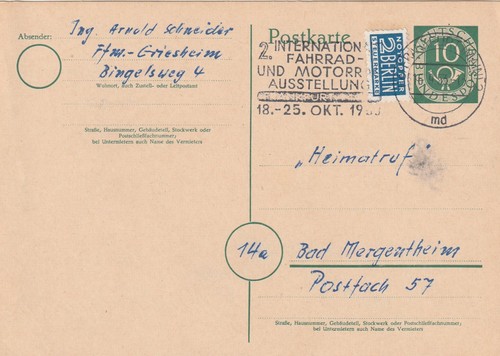 Absender:
Ing. Arnold Schneider
Ffm.-Griesheim
Bingelsweg 4
Wohnort, auch Zustell- oder Leitpostamt
Straße, Hausnummer, Gebäudeteil, Stockwerk oder
Postschließfachnummer;
bei Untermietern auch Name des Vermieters
Postkarte
2. INTERNATION
FAHRRAD-
UND MOTORR
AUSSTELLUNG
18.-25. OKT. 19
NOTOPFER
2 BERLIN
STEUERMARKE
10
md
„Heimatruf"
14a
Bad Mergentheim
Postfach 57
Straße, Hausnummer, Gebäudeteil, Stockwerk oder Postschließfachnummer;
bei Untermietern auch Name des Vermieters